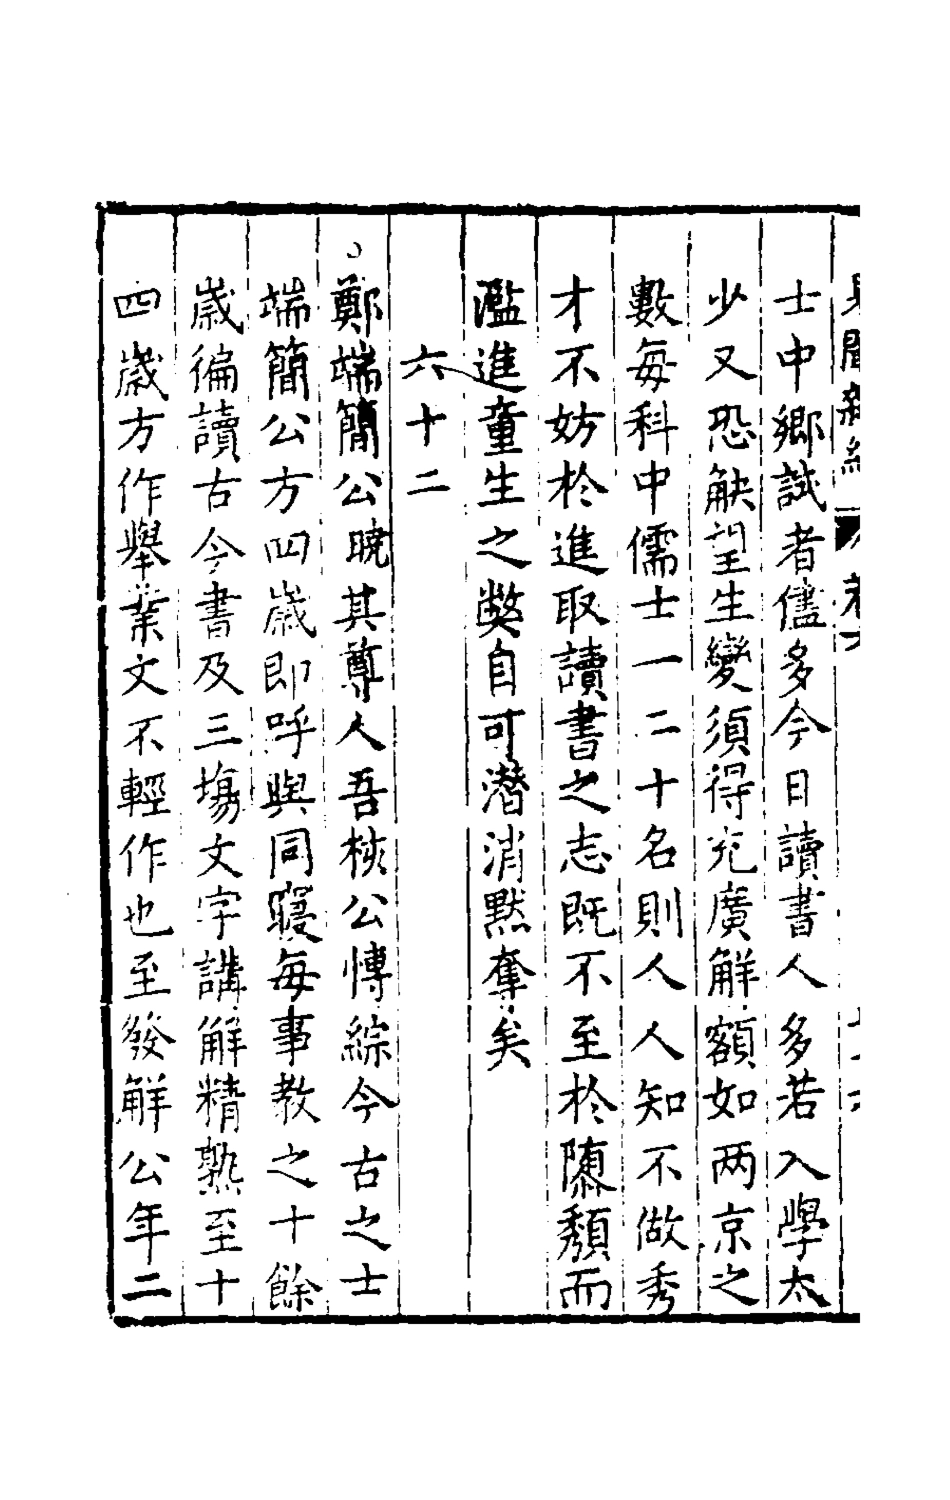 士中鄉試者儘多今日讀書人多若入學太
少又恐觖望生變須得充廣解額如两京之
數每科中儒士一二十名則人人知不做秀
才不妨於進取讀書之志既不至於隳頹而
濫進童生之獘自可潛消黙奪矣
六十二
鄭端簡公曉其尊人吾核公愽綜今古之士
端簡公方四歲即呼與同寢每事教之十餘
歲徧讀古今書及三塲文字講解精熟至十
四歲方作舉業文不輕作也至發解公年二